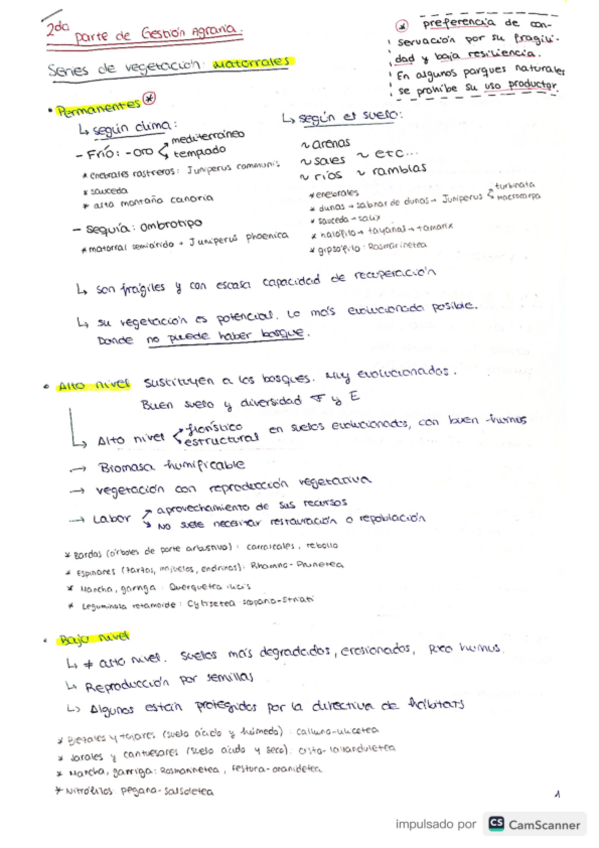 2da parte de Gestión Agraria.
* preferencia de con-
servación por su fragili-
dad y baja resiliencia.
En algunos parques naturales
se prohibe su uso productor.
Series de vegetación: matorrales
• Permanentes *
↳ según clima:
- Frío: - oro mediterráneo
templado
* enebrales rastreros: Juniperus communis
* sauceda
* alta montaña canaria
- Sequía: ombrotipo
* matorral semiárido → Juniperus phoenica
↳ según el suelo:
~ arenas
~ sales ~ etc...
~ ríos ~ ramblas
* enebrales
* dunas → sabinar de dunas → Juniperus turbinata
macrocarpa
* sauceda → salix
* halófito → tayanal → tamarix
* gipsófito: Rosmarinetea
↳ son frágiles y con escasa capacidad de recuperación
↳ su vegetación es potencial. Lo más evolucionada posible.
Donde no puede haber bosque.
• Alto nivel sustituyen a los bosques. Muy evolucionados.
Buen suelo y diversidad F y E
↳ Alto nivel florístico
estructural en suelos evolucionados, con buen humus
→ Biomasa humificable
→ vegetación con reproducción vegetativa
→ Labor aprovechamiento de sus recursos
No suele necesitar restauración o repoblación
* Bordas (árboles de porte arbustivo): carrascales, rebollo
* Espinares (zarzas, majuelos, endrinos): Rhamno-Prunetea
* Mancha, garriga: Querquetea ilicis
* Leguminosa retamoide: Cytisetea scopario-striati
• Bajo nivel
↳ ≠ alto nivel. Suelos más degradados, erosionados, poco humus.
↳ Reproducción por semillas
↳ Algunos están protegidos por la directiva de hábitats
* Brezales y tojares (suelo ácido y húmedo): calluno-ulicetea
* Jarales y cantuesares (suelo ácido y seco). cisto-lavanduletea
* Mancha, garriga: Rosmarinetea, festuca-
* Nitrófilos pegano-salsoletea
1
impulsado por CS CamScanner